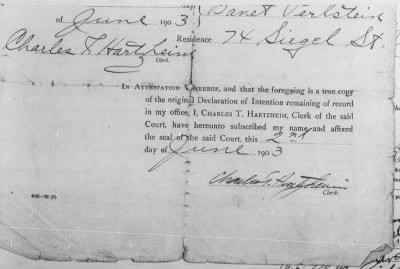 day)
of June 1903. Banet Verlstein
Charles T. Hartzheim Residence 74 Siegel St.
Clerk.
IN ATTESTATION WHEREOF, and that the foregoing is a true copy
of the original Declaration of Intention remaining of record
in my office, I, CHARLES T. HARTZHEIM, Clerk of the said
Court, have hereunto subscribed my name and affixed
the seal of the said Court, this 2nd
day of June 1903
Charles T. Hartzheim
Clerk.